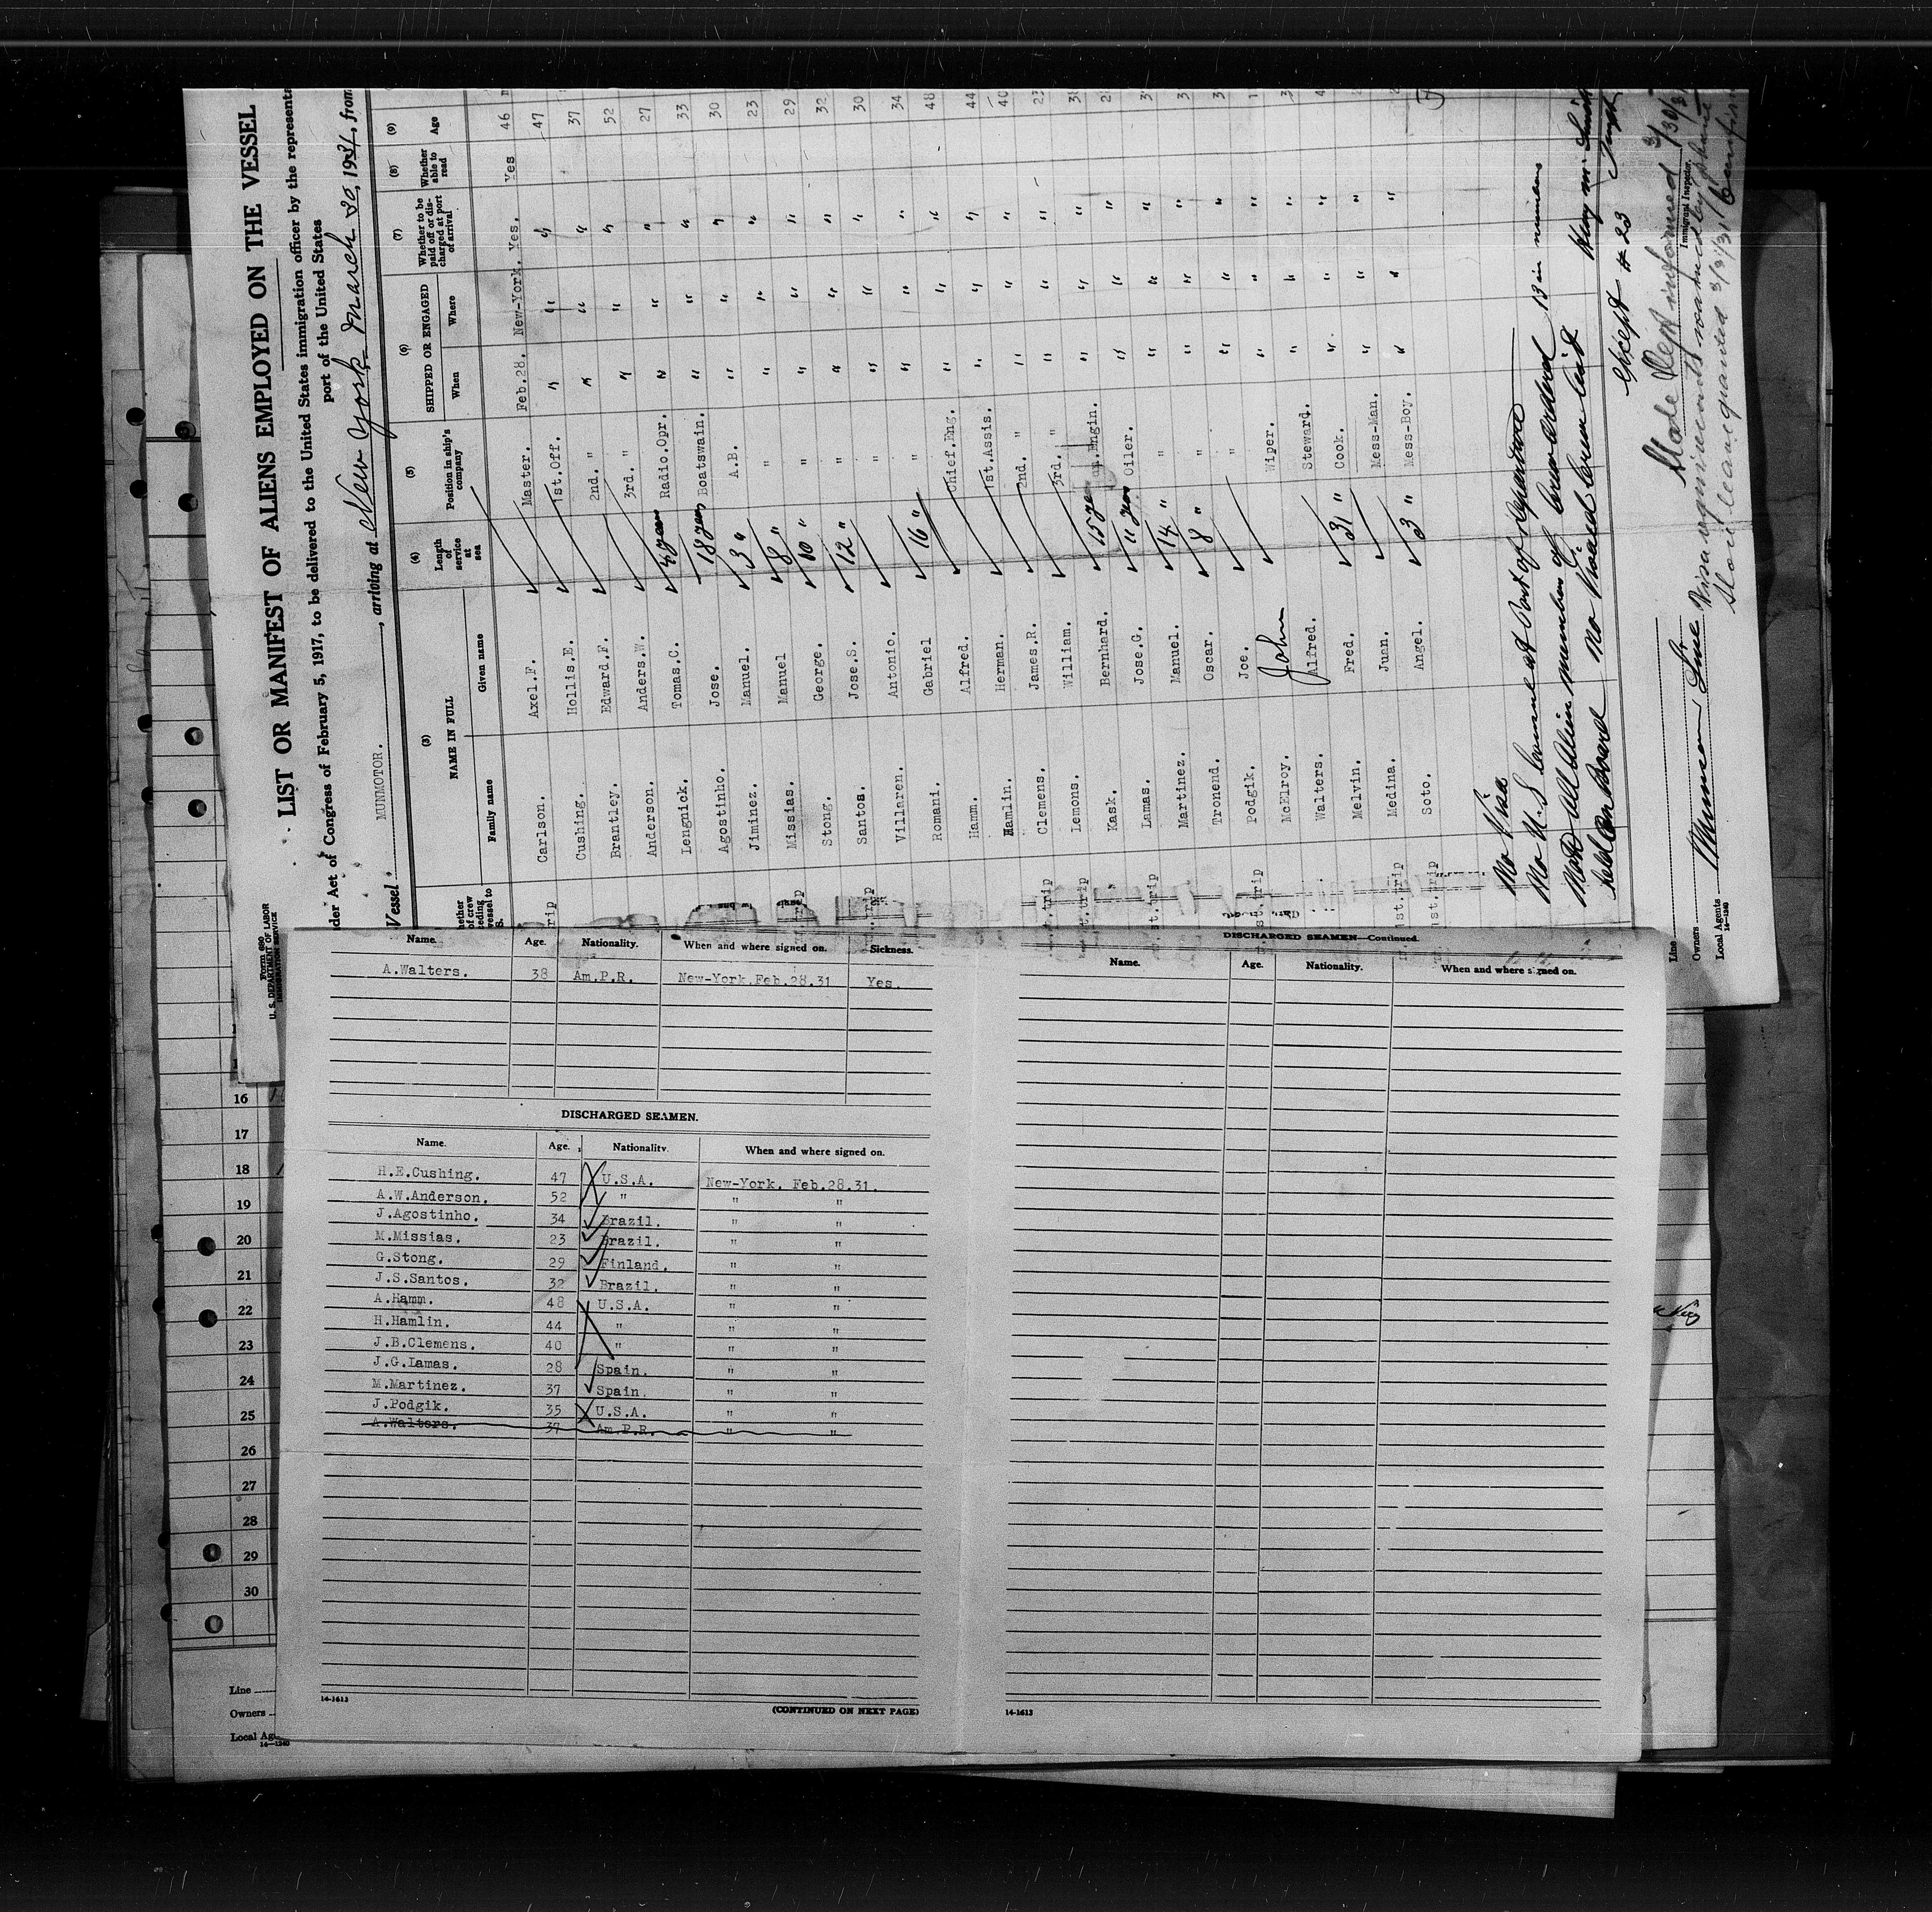 LIST OR MANIFEST OF ALIENS EMPLOYED ON THE VESSEL
Form 680
U. S. DEPARTMENT OF LABOR
IMMIGRATION SERVICE
der Act of Congress of February 5, 1917, to be delivered to the United States immigration officer by the representa
port of the United States
Vessel MUNMOTOR. , arriving at New York March 30, 1931, from
(3) (4) (5) (6) (7) (8) (9)
NAME IN FULL
Family name Given name
Length of service at sea
Position in ship's company
SHIPPED OR ENGAGED
When Where
Whether to be paid off or discharged at port of arrival
Whether able to read
Age
Carlson. Axel.F. Master. Feb.28. New-York. Yes. Yes 46
Cushing. Hollis.E. 1st.Off. " " " 47
Brantley. Edward.F. 2nd. " " " " 37
Anderson. Anders.W. 3rd. " " " " 52
Lengnick. Tomas.C. Radio.Opr. " " " 27
Agostinho. Jose. 18 yrs Boatswain. " " " 33
Jiminez. Manuel. 3 " A.B. " " " 30
Missias. Manuel 8 " " " " " 23
Stong. George. 10 " " " " " 29
Santos. Jose.S. 12 " " " " " 32
Villaren. Antonio. " " " " 30
Romani. Gabriel 16 " " " " " 34
Hamm. Alfred. Chief.Eng. " " " 48
Hamlin. Herman. 1st.Assis. " " " 44
Clemens. James.R. 2nd. " " " " 40
Lemons. William. 3rd. " " " "
Kask. Bernhard. 15 yrs " " "
Lamas. Jose.G. 11 yrs Oiler. " " "
Martinez. Manuel. 14 " " " " "
Tronend. Oscar. 8 " " " " "
Podgik. Joe. " " " "
McElroy. John Wiper. " " "
Walters. Alfred. Steward. " " "
Melvin. Fred. 31 " Cook. " " "
Medina. Juan. Mess-Man. " " "
Soto. Angel. 3 " Mess-Boy. " " "
No Visa
No U.S. Consul at Port of departure
Note All Alien members of crew ordered
held on Board No Visaed Crew list
13 in number
except # 23
State Dept informed 3/30/31
Immigrant Inspector.
Visa requirements waived by phone
Line
Owners Munson Line
Local Agents
14—1240
Name. Age. Nationality. When and where signed on. Sickness.
A.Walters. 38 Am.P.R. New-York.Feb.28.31 Yes.
DISCHARGED SEAMEN.
Name. Age. Nationality. When and where signed on.
H.E.Cushing. 47 U.S.A. New-York. Feb.28.31.
A.W.Anderson. 52 " " "
J.Agostinho. 34 Brazil. " "
M.Missias. 23 Brazil. " "
G.Stong. 29 Finland. " "
J.S.Santos. 32 Brazil. " "
A.Hamm. 48 U.S.A. " "
H.Hamlin. 44 " " "
J.B.Clemens. 40 " " "
J.G.Lamas. 28 Spain. " "
M.Martinez. 37 Spain. " "
J.Podgik. 35 U.S.A. " "
A.Walters. 37 Am.P.R. " "
14-1613
(CONTINUED ON NEXT PAGE)
DISCHARGED SEAMEN—Continued.
Name. Age. Nationality. When and where signed on.
14-1613
16
17
18
19
20
21
22
23
24
25
26
27
28
29
30
Line
Owners
Local Ag
14—1240